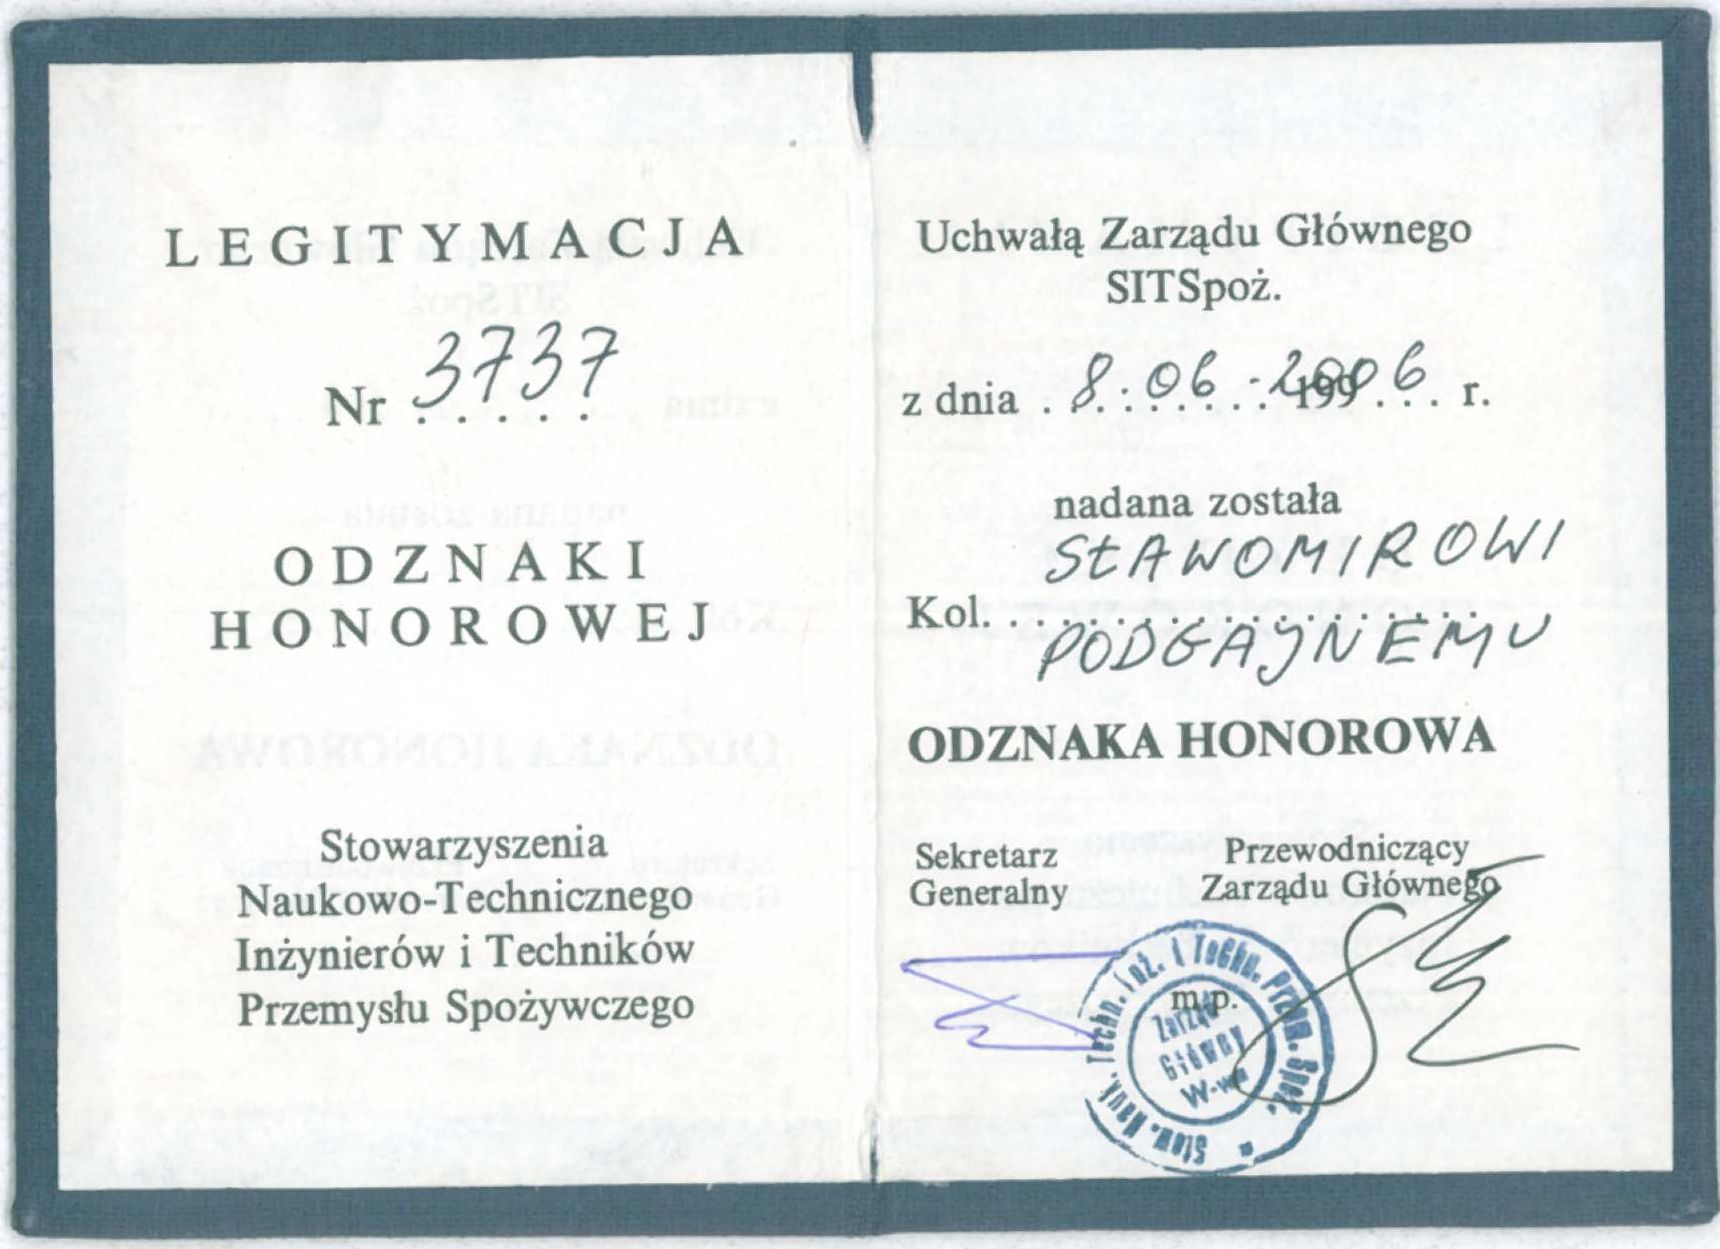 LEGITYMACJA
Nr 3737
ODZNAKI
HONOROWEJ
Stowarzyszenia
Naukowo-Technicznego
Inżynierów i Techników
Przemysłu Spożywczego
Uchwałą Zarządu Głównego
SITSpoż.
z dnia 8.06.2006 r.
nadana została
SŁAWOMIROWI
Kol.
PODGAJNEMU
ODZNAKA HONOROWA
Sekretarz
Generalny
Przewodniczący
Zarządu Głównego
m.p.
Stow. Nauk. Techn. Inż. i Techn. Przem. Spoż.
Zarząd
Główny
W-wa